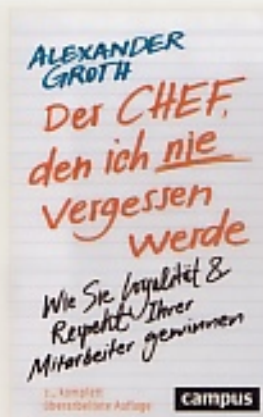 ALEXANDER
GROTH
Der CHEF,
den ich nie
vergessen
werde
Wie Sie Loyalität &
Respekt Ihrer
Mitarbeiter gewinnen
komplett
überarbeitete Auflage
campus